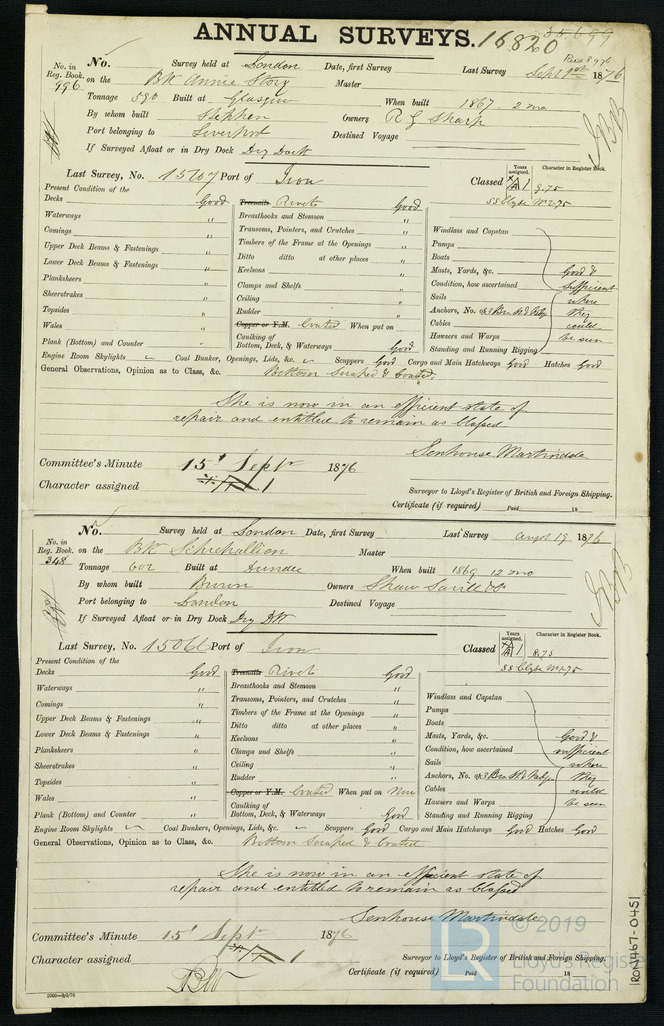 ANNUAL SURVEYS. 16820
No. in Reg. Book. 996
No. Survey held at London Date, first Survey Last Survey Sept 1st 1876
on the Bk Annie Story Master
Tonnage 590 Built at Glasgow When built 1867 2 mo
By whom built Stephen Owners R G Sharp
Port belonging to Liverpool Destined Voyage
If Surveyed Afloat or in Dry Dock Dry Dock
Last Survey, No. 15707 Port of Iron Classed Years assigned. A 1 Character in Register Book. 9.75
SS Clyde 2.75
Present Condition of the
Decks Good Treenails Rivets Good
Waterways " Breasthooks and Stemson " Windlass and Capstan
Comings " Transoms, Pointers, and Crutches " Pumps
Upper Deck Beams & Fastenings " Timbers of the Frame at the Openings " Boats
Lower Deck Beams & Fastenings " Ditto ditto at other places " Masts, Yards, &c. Good &
Planksheers " Keelsons " Condition, how ascertained sufficient
Sheerstrakes " Clamps and Shelfs " Sails where
Topsides " Ceiling " Anchors, No. of 3 Br. they
Wales " Rudder " Cables could
Copper or Y.M. Coated When put on Hawsers and Warps be seen
Plank (Bottom) and Counter " Caulking of Bottom, Deck, & Waterways Good Standing and Running Rigging
Engine Room Skylights Coal Bunker, Openings, Lids, &c. Scuppers Good Cargo and Main Hatchways Good Hatches Good
General Observations, Opinion as to Class, &c. Bottom Scraped & Coated.
She is now in an efficient state of
repair and entitled to remain as classed
Senhouse Martindale
Committee's Minute 15' Septr 1876
Character assigned 1
Surveyor to Lloyd's Register of British and Foreign Shipping.
Certificate (if required) Paid 18
No. in Reg. Book. 348
No. Survey held at London Date, first Survey Last Survey Augst 19 1876
on the Bk Schiehallion Master
Tonnage 602 Built at Dundee When built 1869 12 mo
By whom built Brown Owners Shaw Savill & Co
Port belonging to London Destined Voyage
If Surveyed Afloat or in Dry Dock Dry Dk
Last Survey, No. 15066 Port of Iron Classed Years assigned. A 1 Character in Register Book. 8.75
SS Clyde 2.75
Present Condition of the
Decks Good Treenails Rivets Good
Waterways " Breasthooks and Stemson " Windlass and Capstan
Comings " Transoms, Pointers, and Crutches " Pumps
Upper Deck Beams & Fastenings " Timbers of the Frame at the Openings " Boats
Lower Deck Beams & Fastenings " Ditto ditto at other places " Masts, Yards, &c. Good &
Planksheers " Keelsons " Condition, how ascertained sufficient
Sheerstrakes " Clamps and Shelfs " Sails where
Topsides " Ceiling " Anchors, No. of 3 Br. they
Wales " Rudder " Cables could
Copper or Y.M. Coated When put on Now Hawsers and Warps be seen
Plank (Bottom) and Counter " Caulking of Bottom, Deck, & Waterways Good Standing and Running Rigging
Engine Room Skylights Coal Bunkers, Openings, Lids, &c. Scuppers Good Cargo and Main Hatchways Good Hatches Good
General Observations, Opinion as to Class, &c. Bottom Scraped & Coated
She is now in an efficient state of
repair and entitled to remain as classed
Senhouse Martindale
Committee's Minute 15' Septr 1876
Character assigned 1
Surveyor to Lloyd's Register of British and Foreign Shipping.
Certificate (if required) Paid 18
© 2019
LR Lloyd's Register
Foundation
IRON467-0451